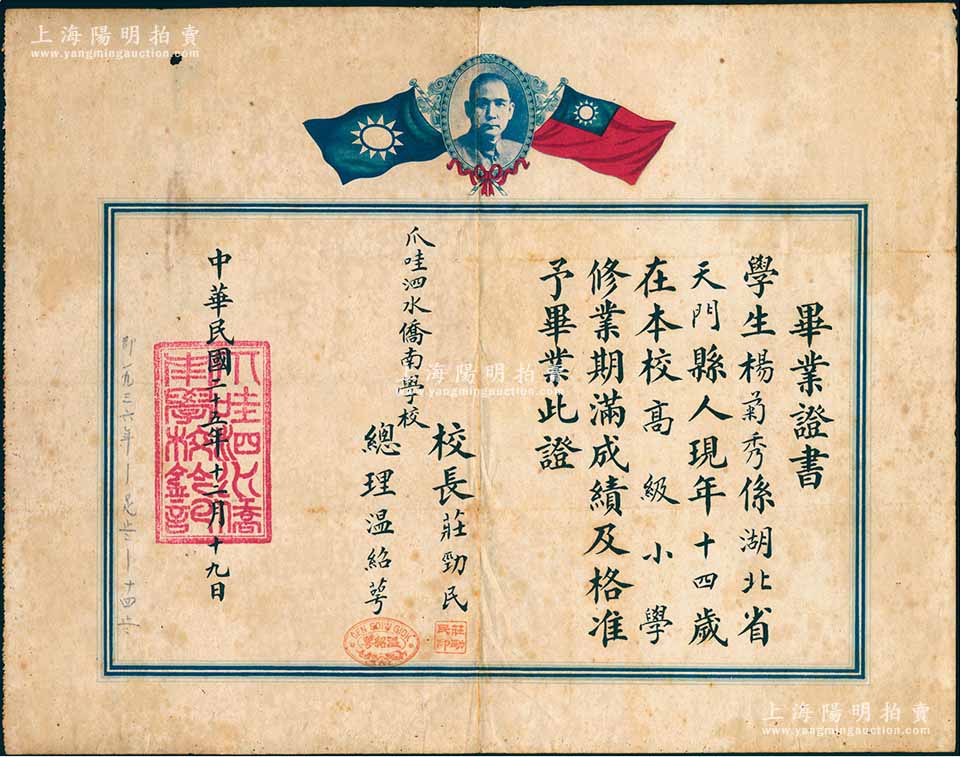 上海陽明拍賣
www.yangmingauction.com
畢業證書
學生楊菊秀係湖北省
天門縣人現年十四歲
在本校高級小學
修業期滿成績及格准
予畢業此證
爪哇泗水僑南學校
校長莊勁民
總理温紹萼
莊勁
民印
温紹萼
中華民國二十五年十二月十九日
即一九三六年
十四歲
上海陽明拍賣
www.yangmingauction.com
上海陽明拍賣
www.yangmingauction.com